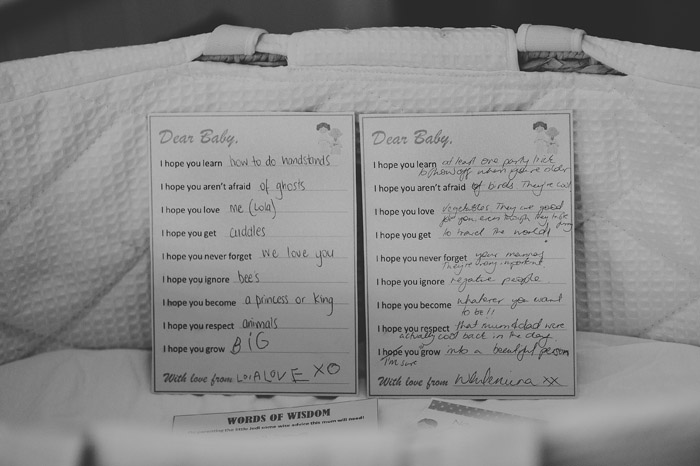 Dear Baby,
I hope you learn how to do handstands
I hope you aren't afraid of ghosts
I hope you love me (Lola)
I hope you get cuddles
I hope you never forget we love you
I hope you ignore bees
I hope you become a princess or king
I hope you respect animals
I hope you grow BiG
With love from LOlA LOVE XO
Dear Baby,
I hope you learn at least one party trick
to show off when you're older
I hope you aren't afraid of birds. They're cool
I hope you love vegetables. They are good
for you even though they taste funny
I hope you get to travel the world!
I hope you never forget your manners
They're very important
I hope you ignore negative people
I hope you become whatever you want
to be!!
I hope you respect that mum & dad were
actually cool back in the day
I hope you grow into a beautiful person
I'm sure
With love from xx
WORDS OF WISDOM
some wise advice this mum will need!